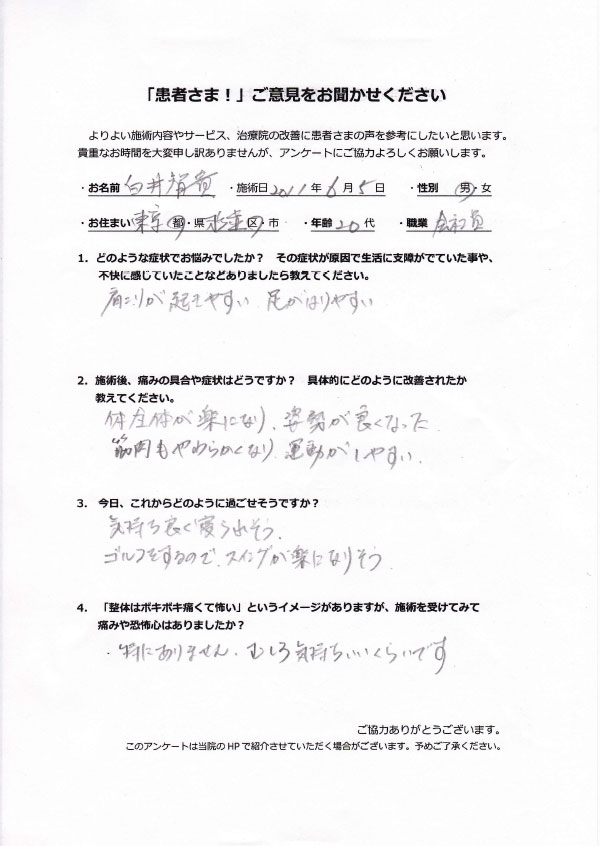 「患者さま！」ご意見をお聞かせください
よりよい施術内容やサービス、治療院の改善に患者さまの声を参考にしたいと思います。
貴重なお時間を大変申し訳ありませんが、アンケートにご協力よろしくお願いします。
・お名前 白井智貴 ・施術日 2011年 6月 5日 ・性別 男・女
・お住まい 東京 都・県 区・市 ・年齢 20代 ・職業 会社員
1．どのような症状でお悩みでしたか？　その症状が原因で生活に支障がでていた事や、
不快に感じていたことなどありましたら教えてください。
肩こりが起きやすい 足がはりやすい
2．施術後、痛みの具合や症状はどうですか？　具体的にどのように改善されたか
教えてください。
体全体が楽になり、姿勢が良くなった
筋肉もやわらかくなり 運動がしやすい．
3．今日、これからどのように過ごせそうですか？
気持ち良く寝られそう．
ゴルフをするので、スイングが楽になりそう
4．「整体はボキボキ痛くて怖い」というイメージがありますが、施術を受けてみて
痛みや恐怖心はありましたか？
・特にありません．むしろ気持ちいいくらいです
ご協力ありがとうございます。
このアンケートは当院のHPで紹介させていただく場合がございます。予めご了承ください。